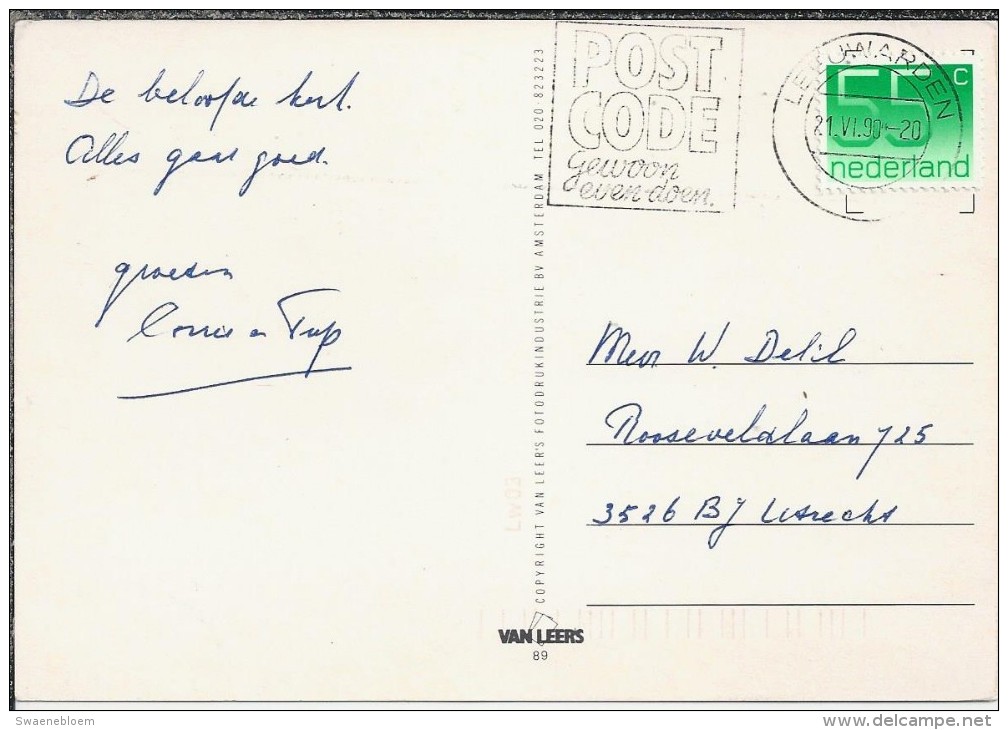 De beloofde kerk.
Alles gaat goed.
groeten
Corrie en
POST
CODE
gewoon
even doen.
LEEUWARDEN
21.VI.90-20
55 C
nederland
W. Delil
Rooseveldlaan 725
3526 BJ Utrecht
COPYRIGHT VAN LEER'S FOTODRUKINDUSTRIE BV AMSTERDAM TEL 020-823223
VAN LEERS
89
LW03
Swaenebloem
www.delcampe.net